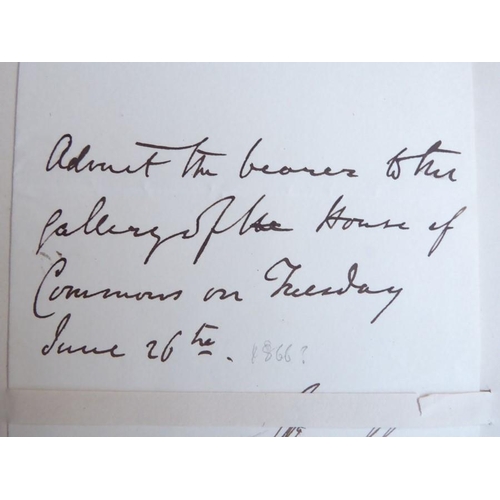 Admit the bearer to the
gallery of the House of
Commons on Tuesday
June 26th. 1866?